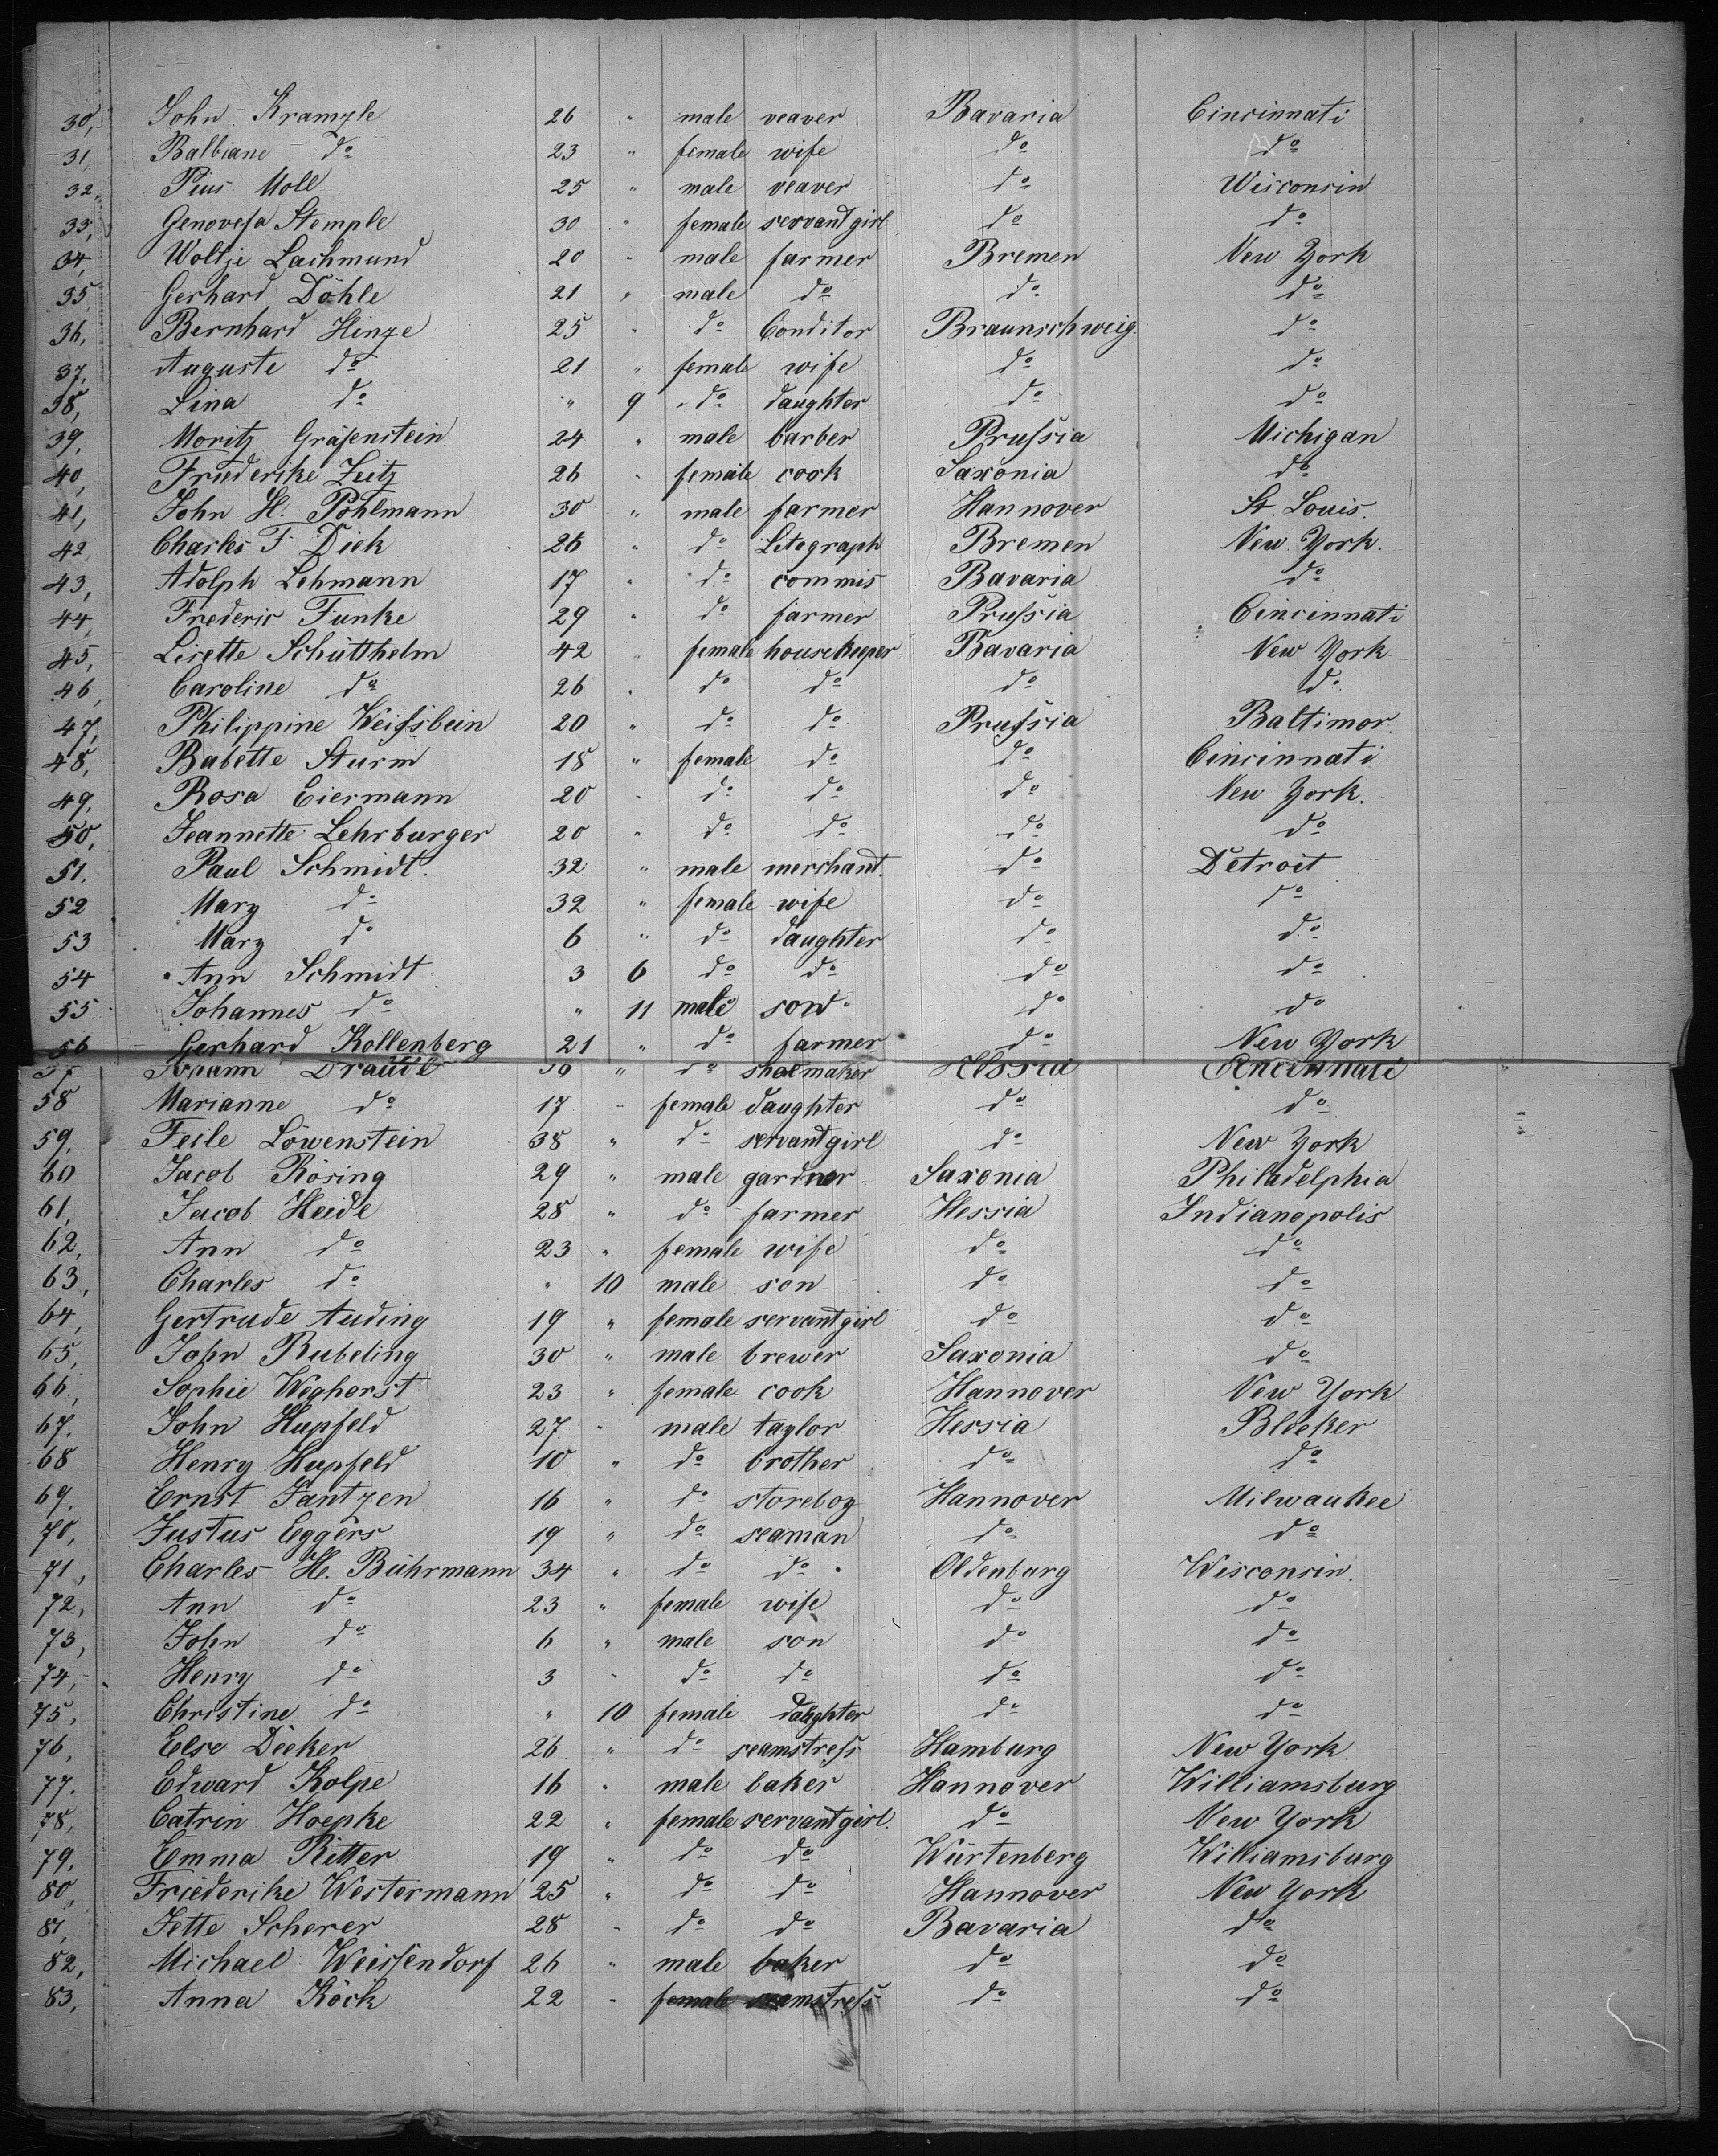 30, John Krample 26 " male veaver Bavaria Cincinnati
31, Balbiane do 23 " female wife do do
32, Pius Moll 25 " male veaver do Wisconsin
33, Genovefa Stemple 30 " female servant girl do do
34, Woltje Lachmund 20 " male farmer Bremen New York
35, Gerhard Döhle 21 " male do do do
36, Bernhard Hinze 25 " do Conditor Braunschweig. do
37, Auguste do 21 " female wife do do
38, Lina do " 9 do daughter do do
39, Moritz Gräfenstein 24 " male barber Prussia Michigan
40, Friederike Zeitz 26 " female cook Saxonia do
41, John H. Pöhlmann 30 " male farmer Hannover St. Louis.
42, Charles F. Dick 26 " do Litograph Bremen New York.
43, Adolph Lehmann 17 " do commis Bavaria do
44, Frederic Funke 29 " do farmer Prussia Cincinnati
45, Lisette Schütthelm 42 " female housekeeper Bavaria New York
46, Caroline do 26 " do do do do
47, Philippine Weissbein 20 " do do Prussia Baltimor.
48, Babette Sturm 18 " female do do Cincinnati
49, Rosa Eiermann 20 " do do do New York.
50, Jeannette Lehrburger 20 " do do do do
51. Paul Schmidt. 32 " male merchant. do Detroit
52 Mary do 32 " female wife do do
53 Mary do 6 " do daughter do do
54 Ann Schmidt 3 6 do do do do
55 Johannes do " 11 male son do do do
56 Gerhard Kollenberg 21 " do farmer do New York
57 Johann " do shoemaker Hessia Cincinnati
58 Marianne do 17 " female daughter do do
59, Feile Löwenstein 38 " do servant girl do New York
60 Jacob Rösing 29 " male gardner Saxonia Philadelphia
61, Jacob Heide 28 " do farmer Hessia Indianopolis
62, Ann do 23 " female wife do do
63, Charles do " 10 male son do do
64, Gertrude Auding 19 " female servant girl do do
65, John Rubeling 30 " male brewer Saxonia do
66, Sophie Weghorst 23 " female cook Hannover New York
67. John Hupfeld 27 " male taylor Hessia Bleeker
68 Henry Hupfeld 10 " do brother do do
69, Ernst Jantzen 16 " do storeboy Hannover Milwaukee
70, Justus Eggers 19 " do seaman do do
71, Charles H. Bührmann 34 " do do Oldenburg Wisconsin.
72, Ann do 23 " female wife do do
73, John do 6 " male son do do
74, Henry do 3 " do do do do
75, Christine do " 10 female daughter do do
76, Else Dieker 26 " do seamstress Hamburg New York.
77. Edward Kolpe 16 " male baker Hannover Williamsburg
78, Catrin Hoepke 22 " female servant girl. do New York
79, Emma Ritter 19 " do do Würtenberg Williamsburg
80, Friederike Westermann 25 " do do Hannover New York
81, Jette Scherer 28 " do do Bavaria do
82, Michael Weissendorf 26 " male baker do do
83, Anna Köck 22 " female seamstress do do